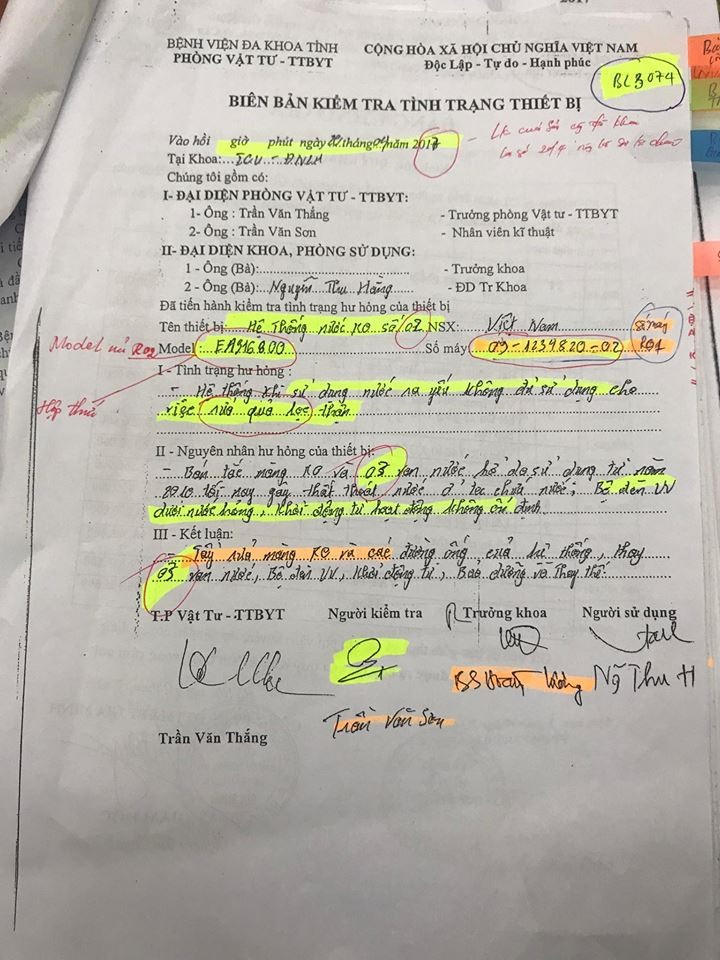 2017
BỆNH VIỆN ĐA KHOA TỈNH
PHÒNG VẬT TƯ - TTBYT
CỘNG HÒA XÃ HỘI CHỦ NGHĨA VIỆT NAM
Độc Lập - Tự do - Hạnh phúc
BL3074
BIÊN BẢN KIỂM TRA TÌNH TRẠNG THIẾT BỊ
Vào hồi giờ phút ngày tháng năm 2017
Tại Khoa: ICU - ĐNLH
Chúng tôi gồm có:
I- ĐẠI DIỆN PHÒNG VẬT TƯ - TTBYT:
1- Ông : Trần Văn Thắng - Trưởng phòng Vật tư - TTBYT
2- Ông : Trần Văn Sơn - Nhân viên kĩ thuật
II- ĐẠI DIỆN KHOA, PHÒNG SỬ DỤNG:
1 - Ông (Bà): - Trưởng khoa
2 - Ông (Bà): Nguyễn Thu Hằng - ĐD Tr Khoa
Đã tiến hành kiểm tra tình trạng hư hỏng của thiết bị
Tên thiết bị: Hệ Thống nước RO số 02 NSX: Việt Nam
Model: EA916800 Số máy: 09-1239820-02
R01
Model
I - Tình trạng hư hỏng :
- Hệ thống khi sử dụng nước ra yếu không đủ sử dụng cho
việc rửa quả lọc thận
II - Nguyên nhân hư hỏng của thiết bị:
- Bán tắc màng RO và 03 van nước hở do sử dụng từ năm
2010 tới nay gây thất thoát nước ở tec chứa nước; Bộ đèn UV
dưới nước hỏng, Khởi động từ hoạt động không ổn định
III - Kết luận:
- Tẩy rửa màng RO và các đường ống của hệ thống, thay
03 van nước, Bộ đèn UV, Khởi động từ, Bảo dưỡng và Thay thế.
T.P Vật Tư -TTBYT Người kiểm tra Trưởng khoa Người sử dụng
Trần Văn Thắng
Trần Văn Sơn